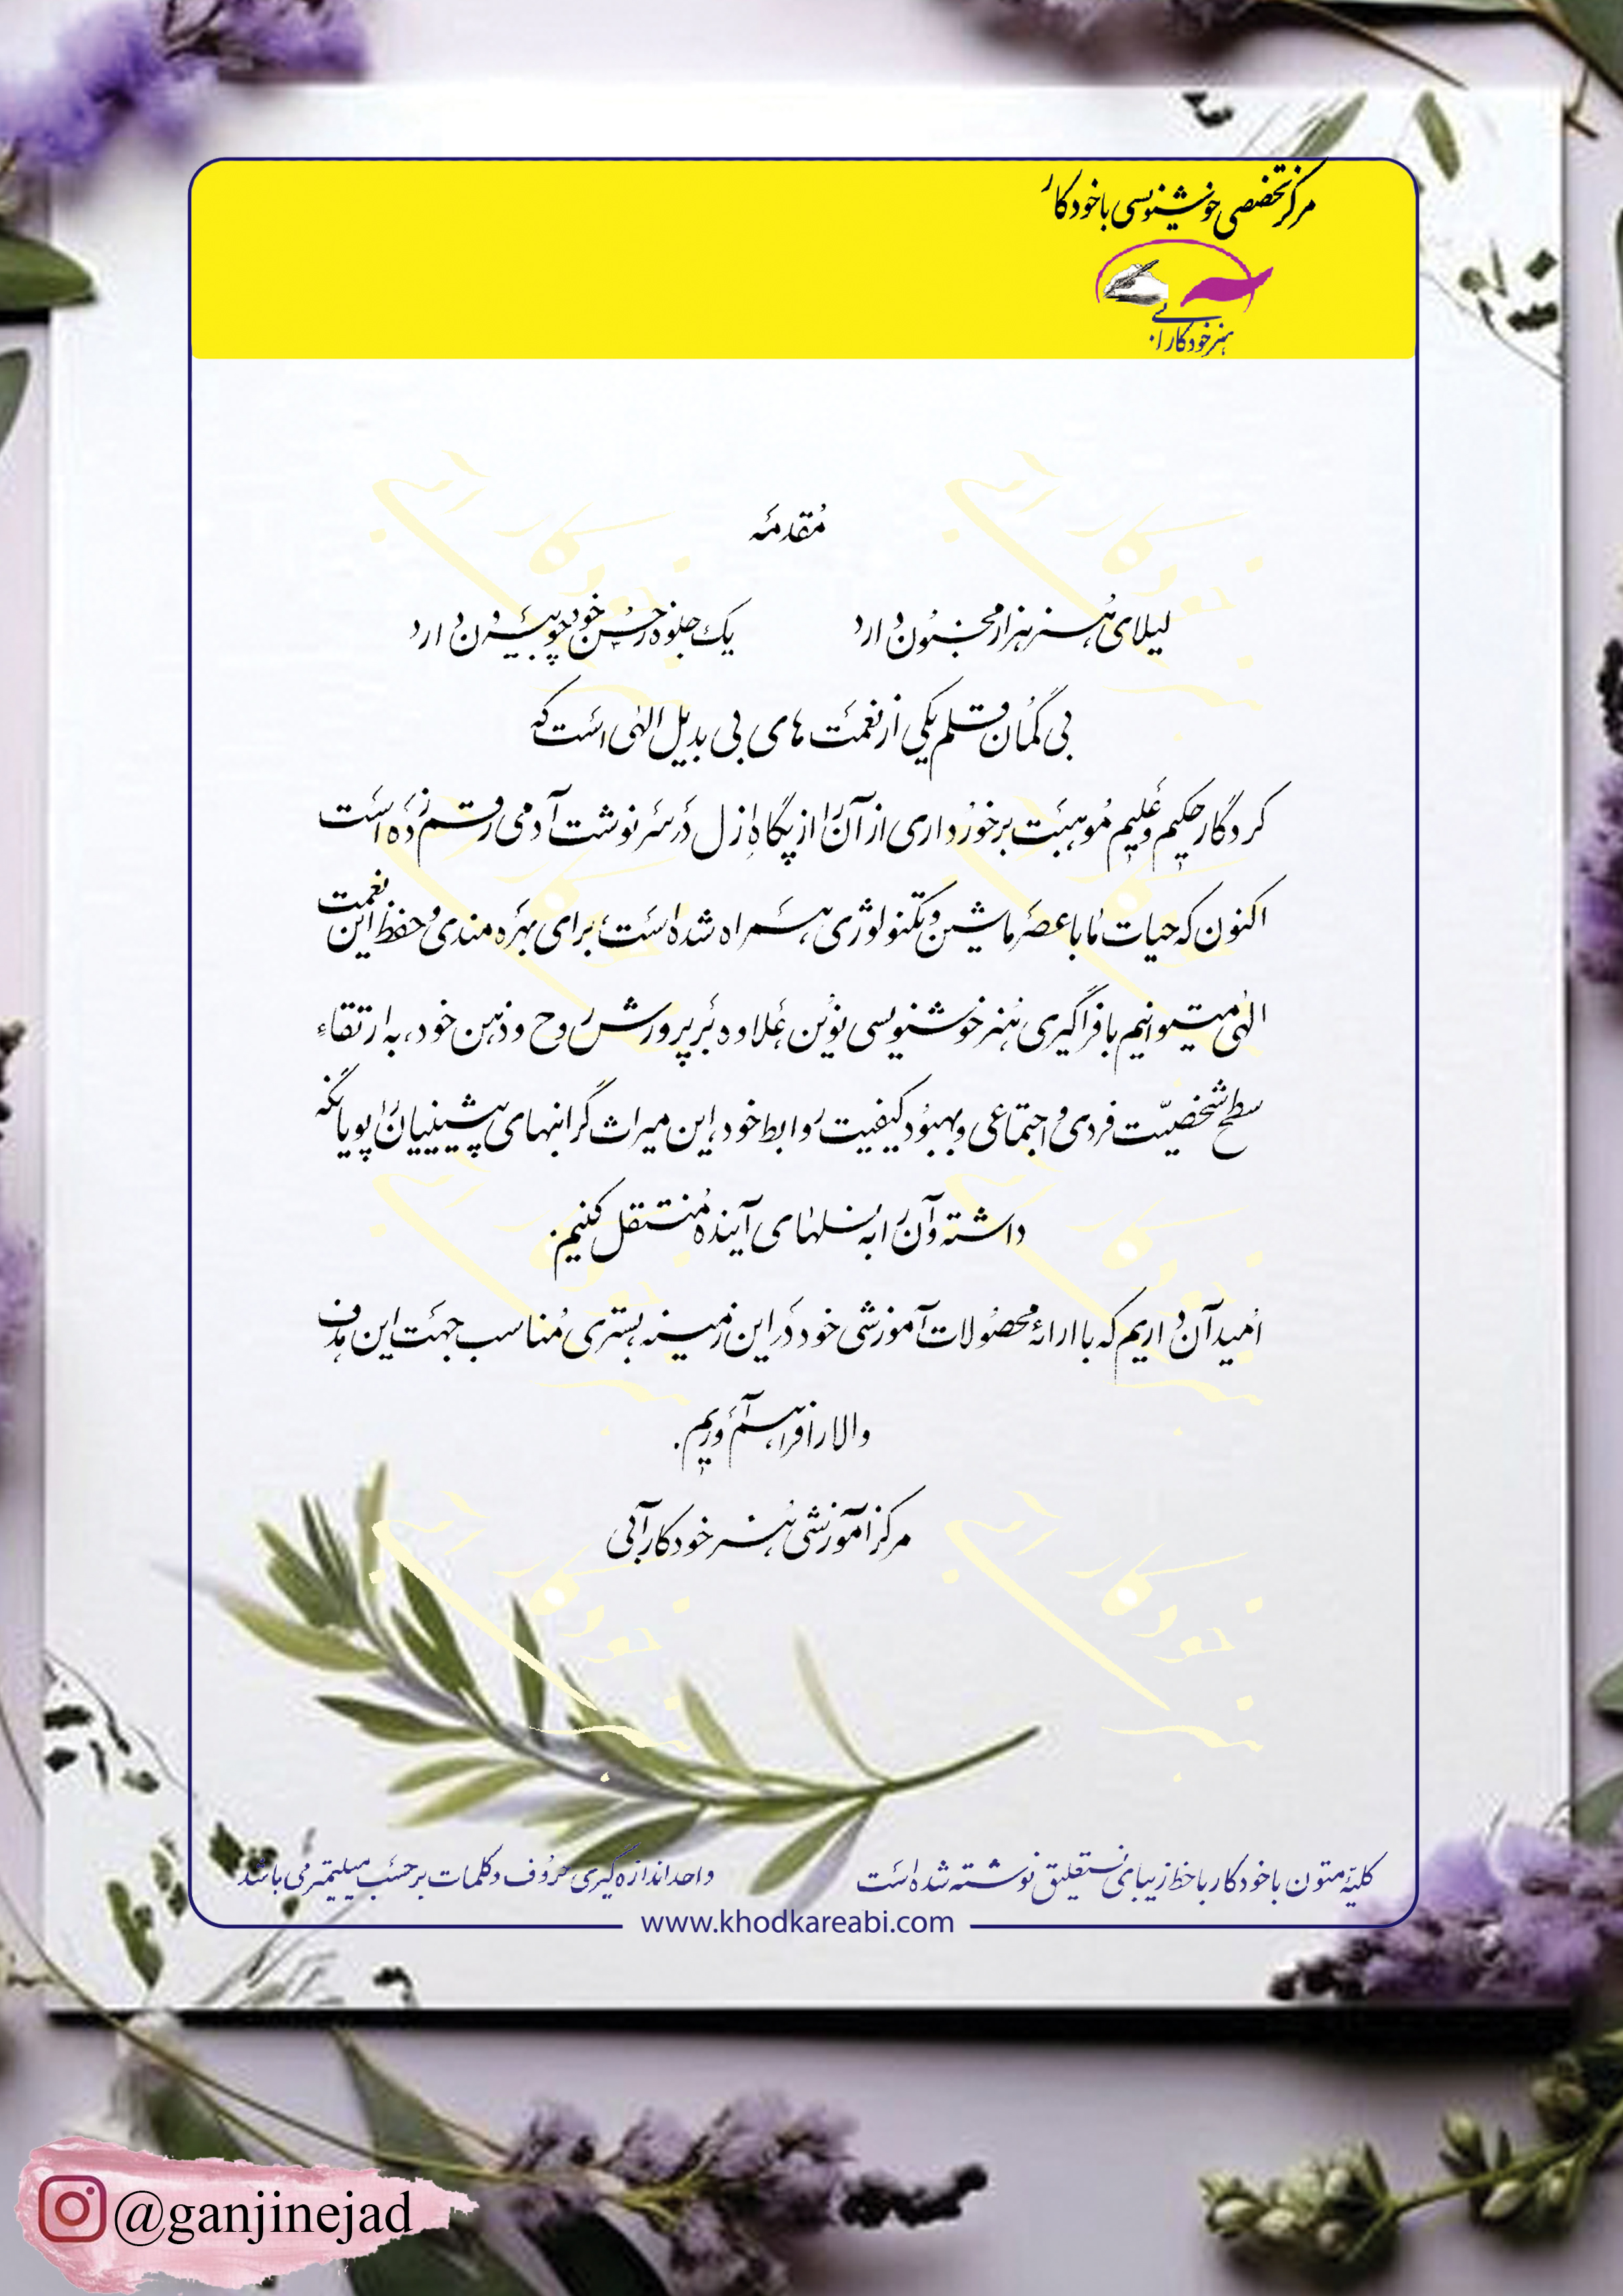 مرکز تخصصی خوشنویسی با خودکار
هنر خودکار آبی
مقدمه
لیلای هنر هزار مجنون دارد یک جلوه ز حسن خود چو بیرون دارد
بی گمان قلم یکی از نعمت های بی بدیل الهی است که
کردگار حکیم و علیم موهبت برخورداری از آن را از پگاه ازل در سرنوشت آدمی رقم زده است
اکنون که حیات ما با عصر ماشین و تکنولوژی همراه شده است، برای بهره مندی و حفظ این نعمت
الهی میتوانیم با فراگیری هنر خوشنویسی نوین علاوه بر پرورش روح و ذهن خود، به ارتقاء
سطح شخصیت فردی و اجتماعی و بهبود کیفیت روابط خود، این میراث گرانبهای پیشینیان را پویا نگه
داشته و آن را به نسلهای آینده منتقل کنیم.
امید آن داریم که با ارائه محصولات آموزشی خود در این زمینه بستری مناسب جهت این هدف
والا را فراهم آوریم.
مرکز آموزشی هنر خودکار آبی
کلیهٔ متون با خودکار با خط زیبای نستعلیق نوشته شده است
واحد اندازه گیری حروف و کلمات بر حسب میلیمتر می باشد
www.khodkareabi.com
@ganjinejad